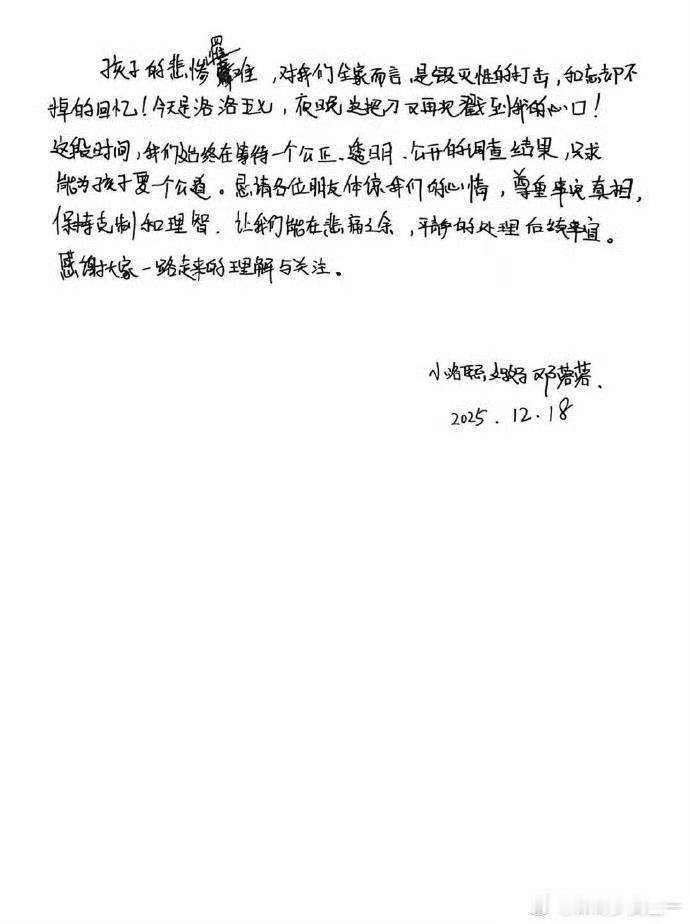 孩子的悲惨罹难,对我们全家而言,是毁灭性的打击,和忘却不
掉的回忆!今天是洛洛五七,夜晚这把刀又再把戳到我的心口!
这段时间,我们始终在等待一个公正、透明、公开的调查结果,只求
能为孩子要一个公道。恳请各位朋友体谅我们的心情,尊重事实真相,
保持克制和理智.让我们能在悲痛之余,平静的处理后续事宜。
感谢大家一路走来的理解与关注。
小洛熙妈妈邓蓉蓉.
2025.12.18